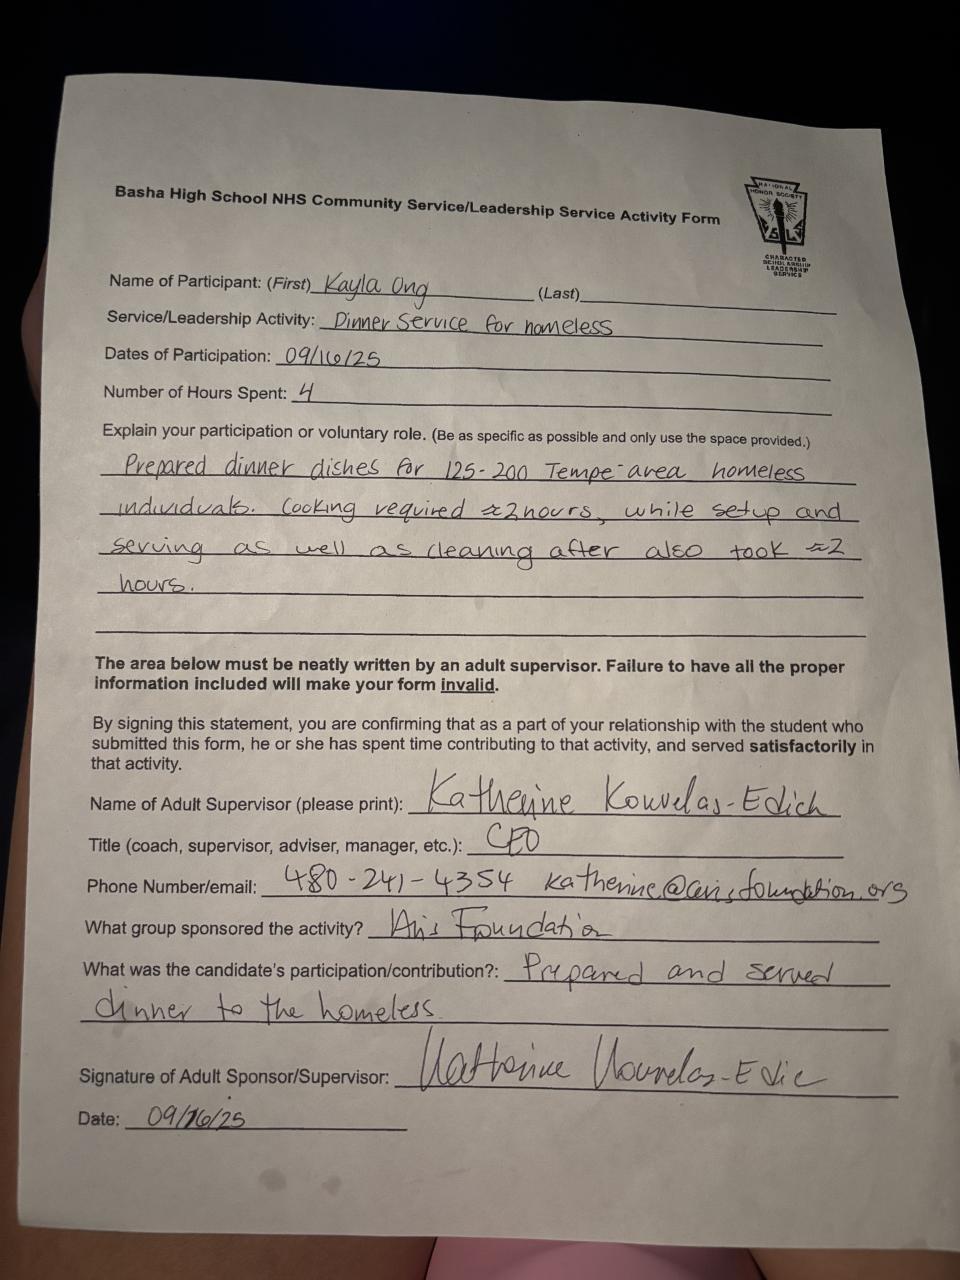 Basha High School NHS Community Service/Leadership Service Activity Form
NATIONAL
HONOR SOCIETY
CHARACTER
SCHOLARSHIP
LEADERSHIP
SERVICE
Name of Participant: (First) Kayla Ong (Last)
Service/Leadership Activity: Dinner Service for homeless
Dates of Participation: 09/16/25
Number of Hours Spent: 4
Explain your participation or voluntary role. (Be as specific as possible and only use the space provided.)
Prepared dinner dishes for 125-200 Tempe-area homeless
individuals. Cooking required ≈2 hours, while setup and
serving as well as cleaning after also took ≈2
hours.
The area below must be neatly written by an adult supervisor. Failure to have all the proper
information included will make your form invalid.
By signing this statement, you are confirming that as a part of your relationship with the student who
submitted this form, he or she has spent time contributing to that activity, and served satisfactorily in
that activity.
Name of Adult Supervisor (please print): Katherine Kouvelas-Edick
Title (coach, supervisor, adviser, manager, etc.): CEO
Phone Number/email: 480-241-4354 katherine@arisfoundation.org
What group sponsored the activity? Aris Foundation
What was the candidate's participation/contribution?: Prepared and served
dinner to the homeless.
Signature of Adult Sponsor/Supervisor: Katherine Kouvelas-Edic
Date: 09/16/25